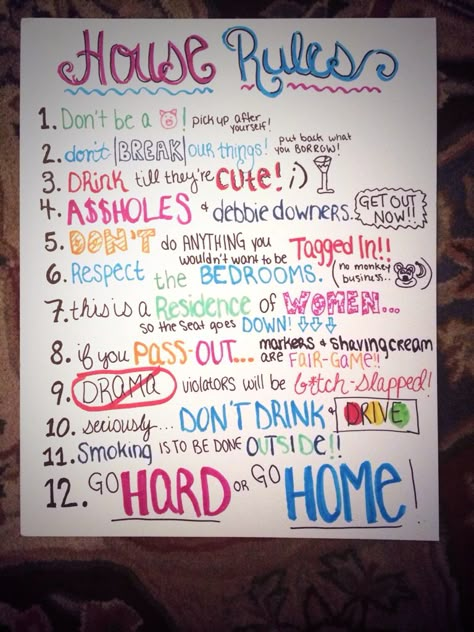 House Rules
1. Don't be a ! pick up after yourself!
2. don't |BREAK| our things! put back what you BORROW!
3. DRink till they're cute! ;)
4. A$$HOLES & debbie downers. GET OUT NOW!!
5. DON'T do ANYTHING you wouldn't want to be Tagged In!!
6. Respect the BEDROOMS. (no monkey business...)
7. this is a Residence of WOMEN...
so the seat goes DOWN!
8. if you PASS-OUT... markers & shaving cream
are FAIR-GAME!!
9. DRAMA violators will be b*tch-slapped!
10. seriously... DON'T DRINK & DRIVE
11. Smoking IS TO BE DONE OUTSIDE!!
12. GO HARD OR GO HOME!